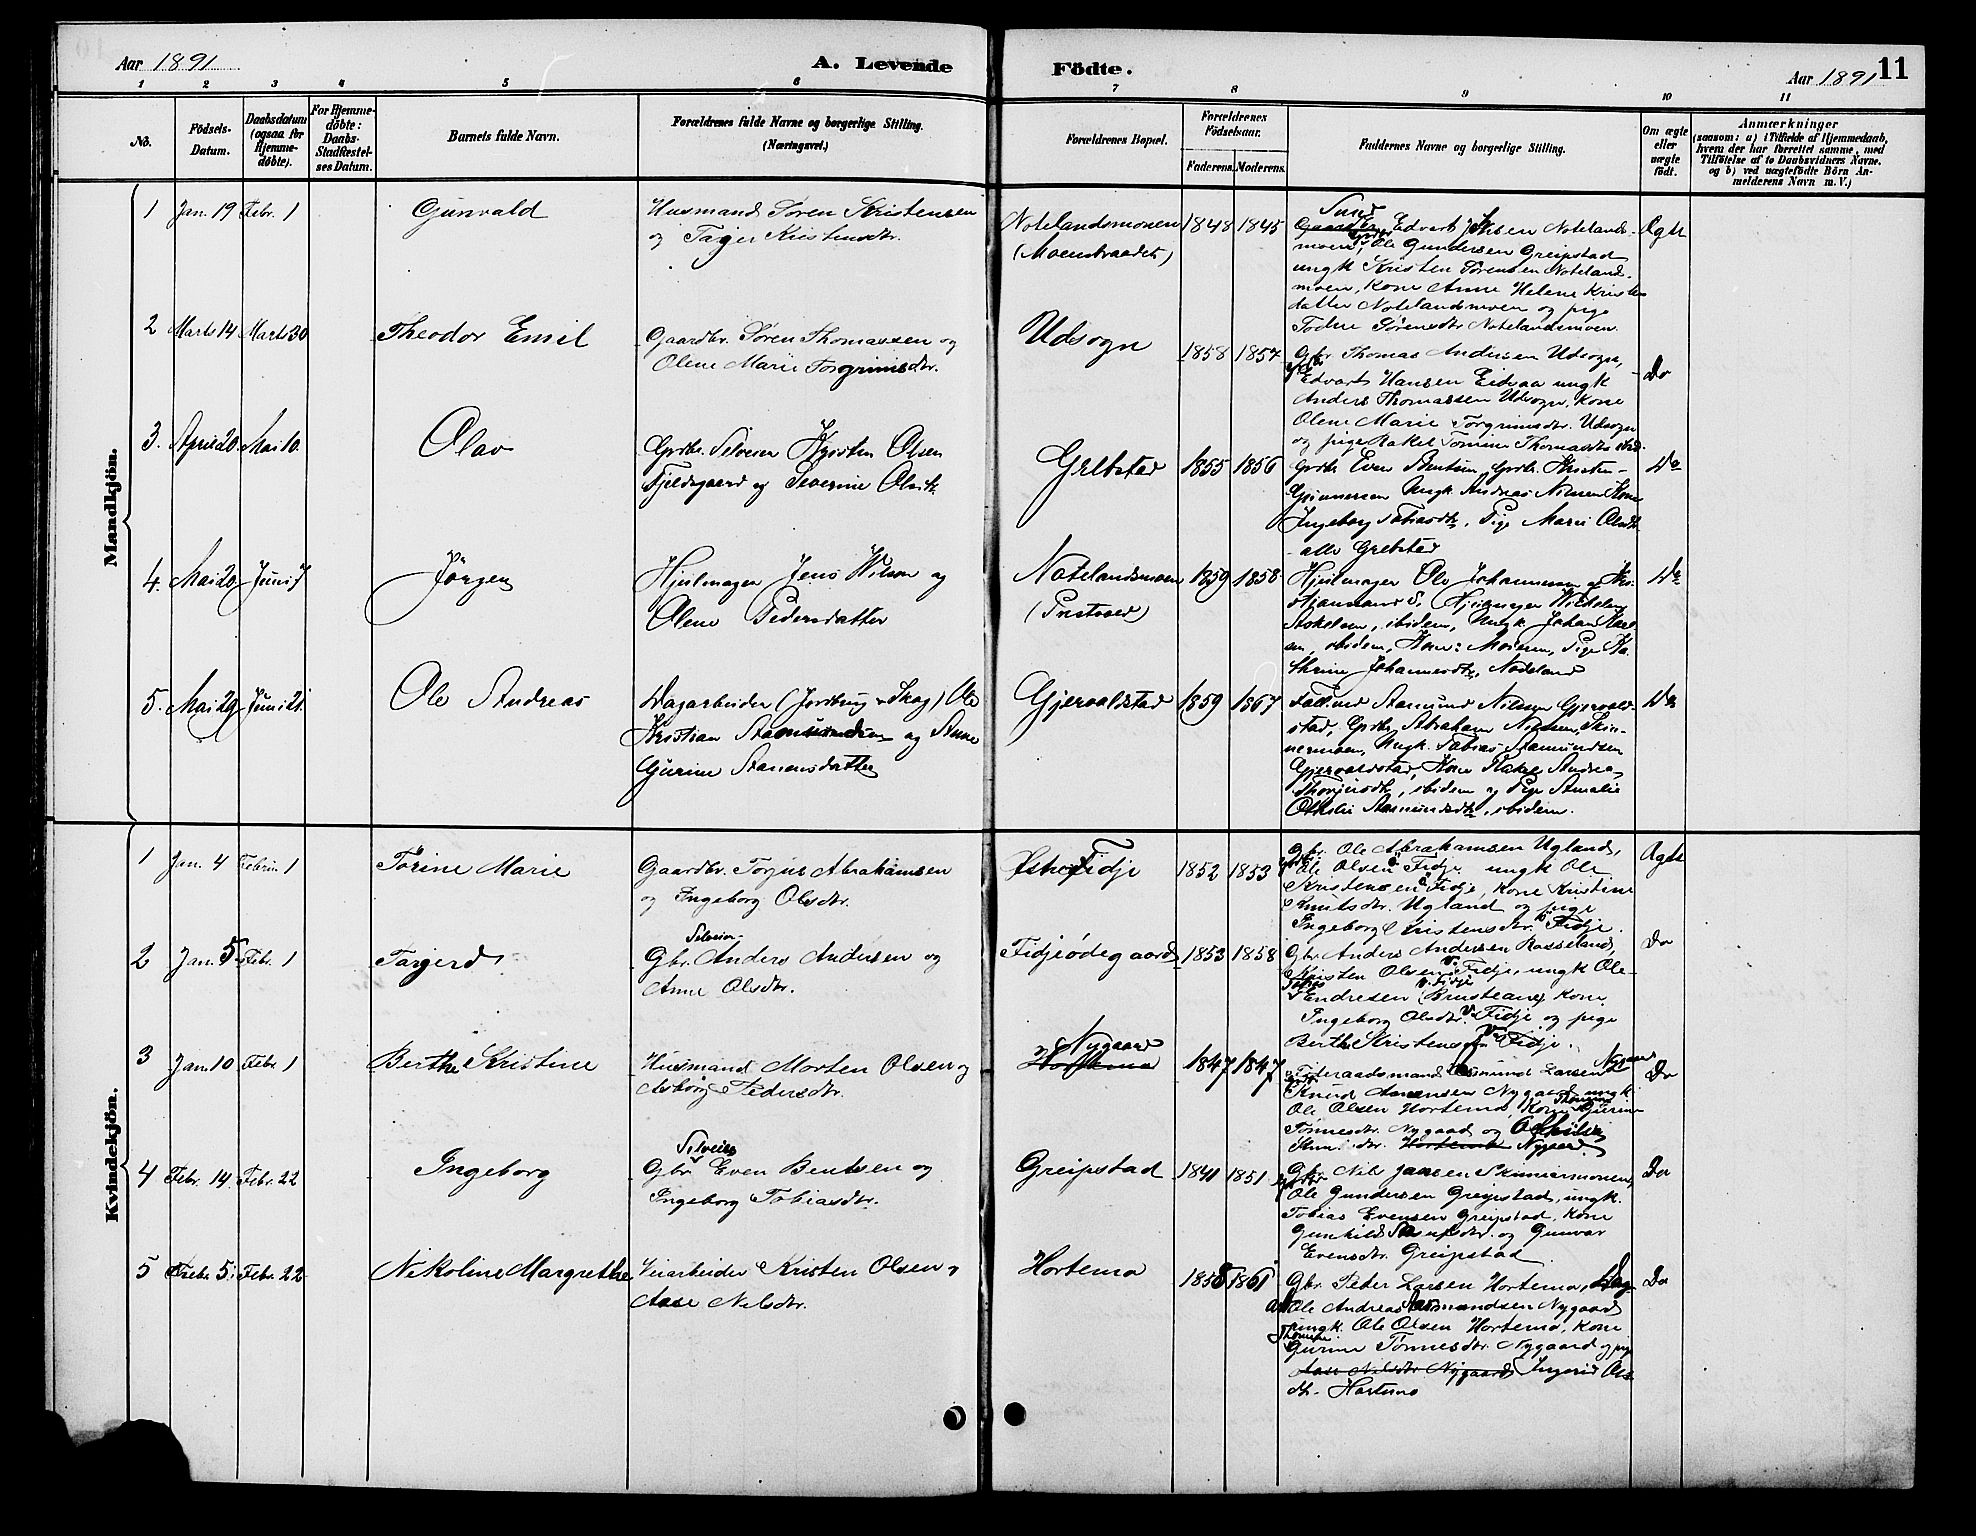 Aar 1891
A. Levende Födte.
Aar 1891
11
1 2 3 4 5 6 7 8 9 10 11
No.
Födsels-Datum.
Daabsdatum (ogsaa for Hjemmedöbte).
For Hjemmedöbte: Daabs-Stadfæstelses Datum.
Barnets fulde Navn.
Forældrenes fulde Navne og borgerlige Stilling. (Næringsvei.)
Forældrenes Bopæl.
Forældrenes Födselsaar.
Faderens. Moderens.
Faddernes Navne og borgerlige Stilling.
Om ægte eller uægte födt.
Anmærkninger
(saasom: a) i Tilfælde af Hjemmedaab, hvem der har forrettet samme, med Tilföielse af to Daabsvidners Navne, og b) ved uægtefödte Börn Anmelderens Navn m. V.)
Mandkjön.
1 Jan. 19 Febr. 1
Gunvald
Husmand Søren Kristensen
og Tarjer Kristensdtr.
Notelandsmoen
(Moensbraadet)
1848 1845
Edvart Notelands-
moen, Ole Gundersen Greipstad
ungk Kristen Sørensen Noteland-
moen, Kone Anne Helene Kristen
datter Notelandsmoen og pige
Todne Sørensdtr Notelandsmoen.
Ægte
2 Marts 14 Marts 30
Theodor Emil
Gaardbr. Søren Thomassen og
Olene Marie Torgrimsdtr.
Udsogn
1858 1857
Gbr. Thomas Andersen Udsogn,
Edvart Hansen Eidsaa ungk
Anders Thomassen Udsogn, Kone
Olene Marie Torgrimsdtr. Udsogn
og pige Rakel Tomine Thomasdtr
Do
3. April 20 Mai 10.
Olav
Grbr. Selveier Kristen Olsen
Fjeldsgaard og Severine Olsdtr.
Grebstad
1855 1856
Grbr. Even Bentsen, Grbr. Kristen
Gunnersen Ungk. Andreas Nilsen Kone
Ingeborg Tobiasdtr, Pige Marie Olsdtr
- alle Grebstad
Do
4. Mai 20 Juni 7
Jörgen
Hjulmager Jens Wilson og
Olene Pedersdatter
Notelandsmoen
1859 1858
Hjulmager Ole Johannessen
Hjulmager Wilhelm
Askelsen, ibidem, Ungk. Johan
ibidem, Kone: Moderen, Pige Ka-
thrine Johannesdtr, Nodeland
Do
5. Mai 29 Juni 21
Ole Andreas
Dagarbeider (Jordbrug & Skog) Ole
Kristian Aasmundsen og Anne
Gurine Aanensdatter
Gjervoldstad
1859 1867
Aasmund Nilsen Gjervold-
stad, Grbr. Abraham Nilsen, Skin-
nermoen, Ungk. Tobias Aasmundsen
Gjervoldstad, Kone Rakel Andrea
ibidem og Pige Amalie
Othelie Aasmundsdtr, ibidem.
Do
Kvindekjön.
1 Jan. 4 Februar 1
Tørine Marie
Gaardbr. Torjus Abrahamsen
og Ingeborg Olsdtr.
Østre Fidje
1852 1853
Gbr. Ole Abrahamsen Ugland,
Ole Olsen Ø Fidje, ungk Ole
Kristensen Ø Fidje, Kone Kristine
Knutsdtr. Ugland og pige
Ingeborg Kristensdtr. Ø Fidje.
Ægte
2 Jan. 5. Febr. 1
Targerd
Selveier
Gbr. Anders Andersen og
Anne Olsdtr.
Fidjeødegaard
1853 1858
Gbr Anders Andersen Rosseland,
Kristen Olsen V. Fidje, ungk Ole
Tobias V. Fidje
Endresen (Brusteane) Kone
Ingeborg Olsdtr. V Fidje og pige
Berthe Kristensdtr V Fidje.
Do
3 Jan. 10 Febr 1
Berthe Kristine
Husmand Morten Olsen og
Aasborg Pedersdtr.
Nygaard
Hortemo
1847 1847
Føderaadsmand Aasmund Larsen Nygaard
Knud Aanensen Nygaard, ungk
Ole Olsen Hortemo, Kone Thomine Gurine
Tønnesdtr. Nygaard og Othilie
Hortemo Nygaard.
Do
4 Febr. 14. Febr. 22
Ingeborg
Selveier
Gbr Even Bentsen og
Ingeborg Tobiasdtr.
Greipstad
1841 1851
Gbr. Nils Jansen Skinnermoen,
Ole Gundersen Greipstad, ungk.
Tobias Evensen Greipstad, Kone
Gunhild og Gunvor
Evensdtr. Greipstad
Do
5 Febr 5. Febr. 22
Nikoline Margrethe
Veiarbeider Kristen Olsen,
Aase Nilsdtr.
Hortemo
1858 1861
Gbr. Peder Larsen Hortemo, Dag-
arb Ole Andreas Aasmundsen Nygaard
ungk. Ole Olsen Hortemo, Kone
Thomine
Gurine Tønnesdtr. Nygaard og pige
Aase Nilsdtr Nygaard Ingerid Ols-
dtr. Hortemo
Do